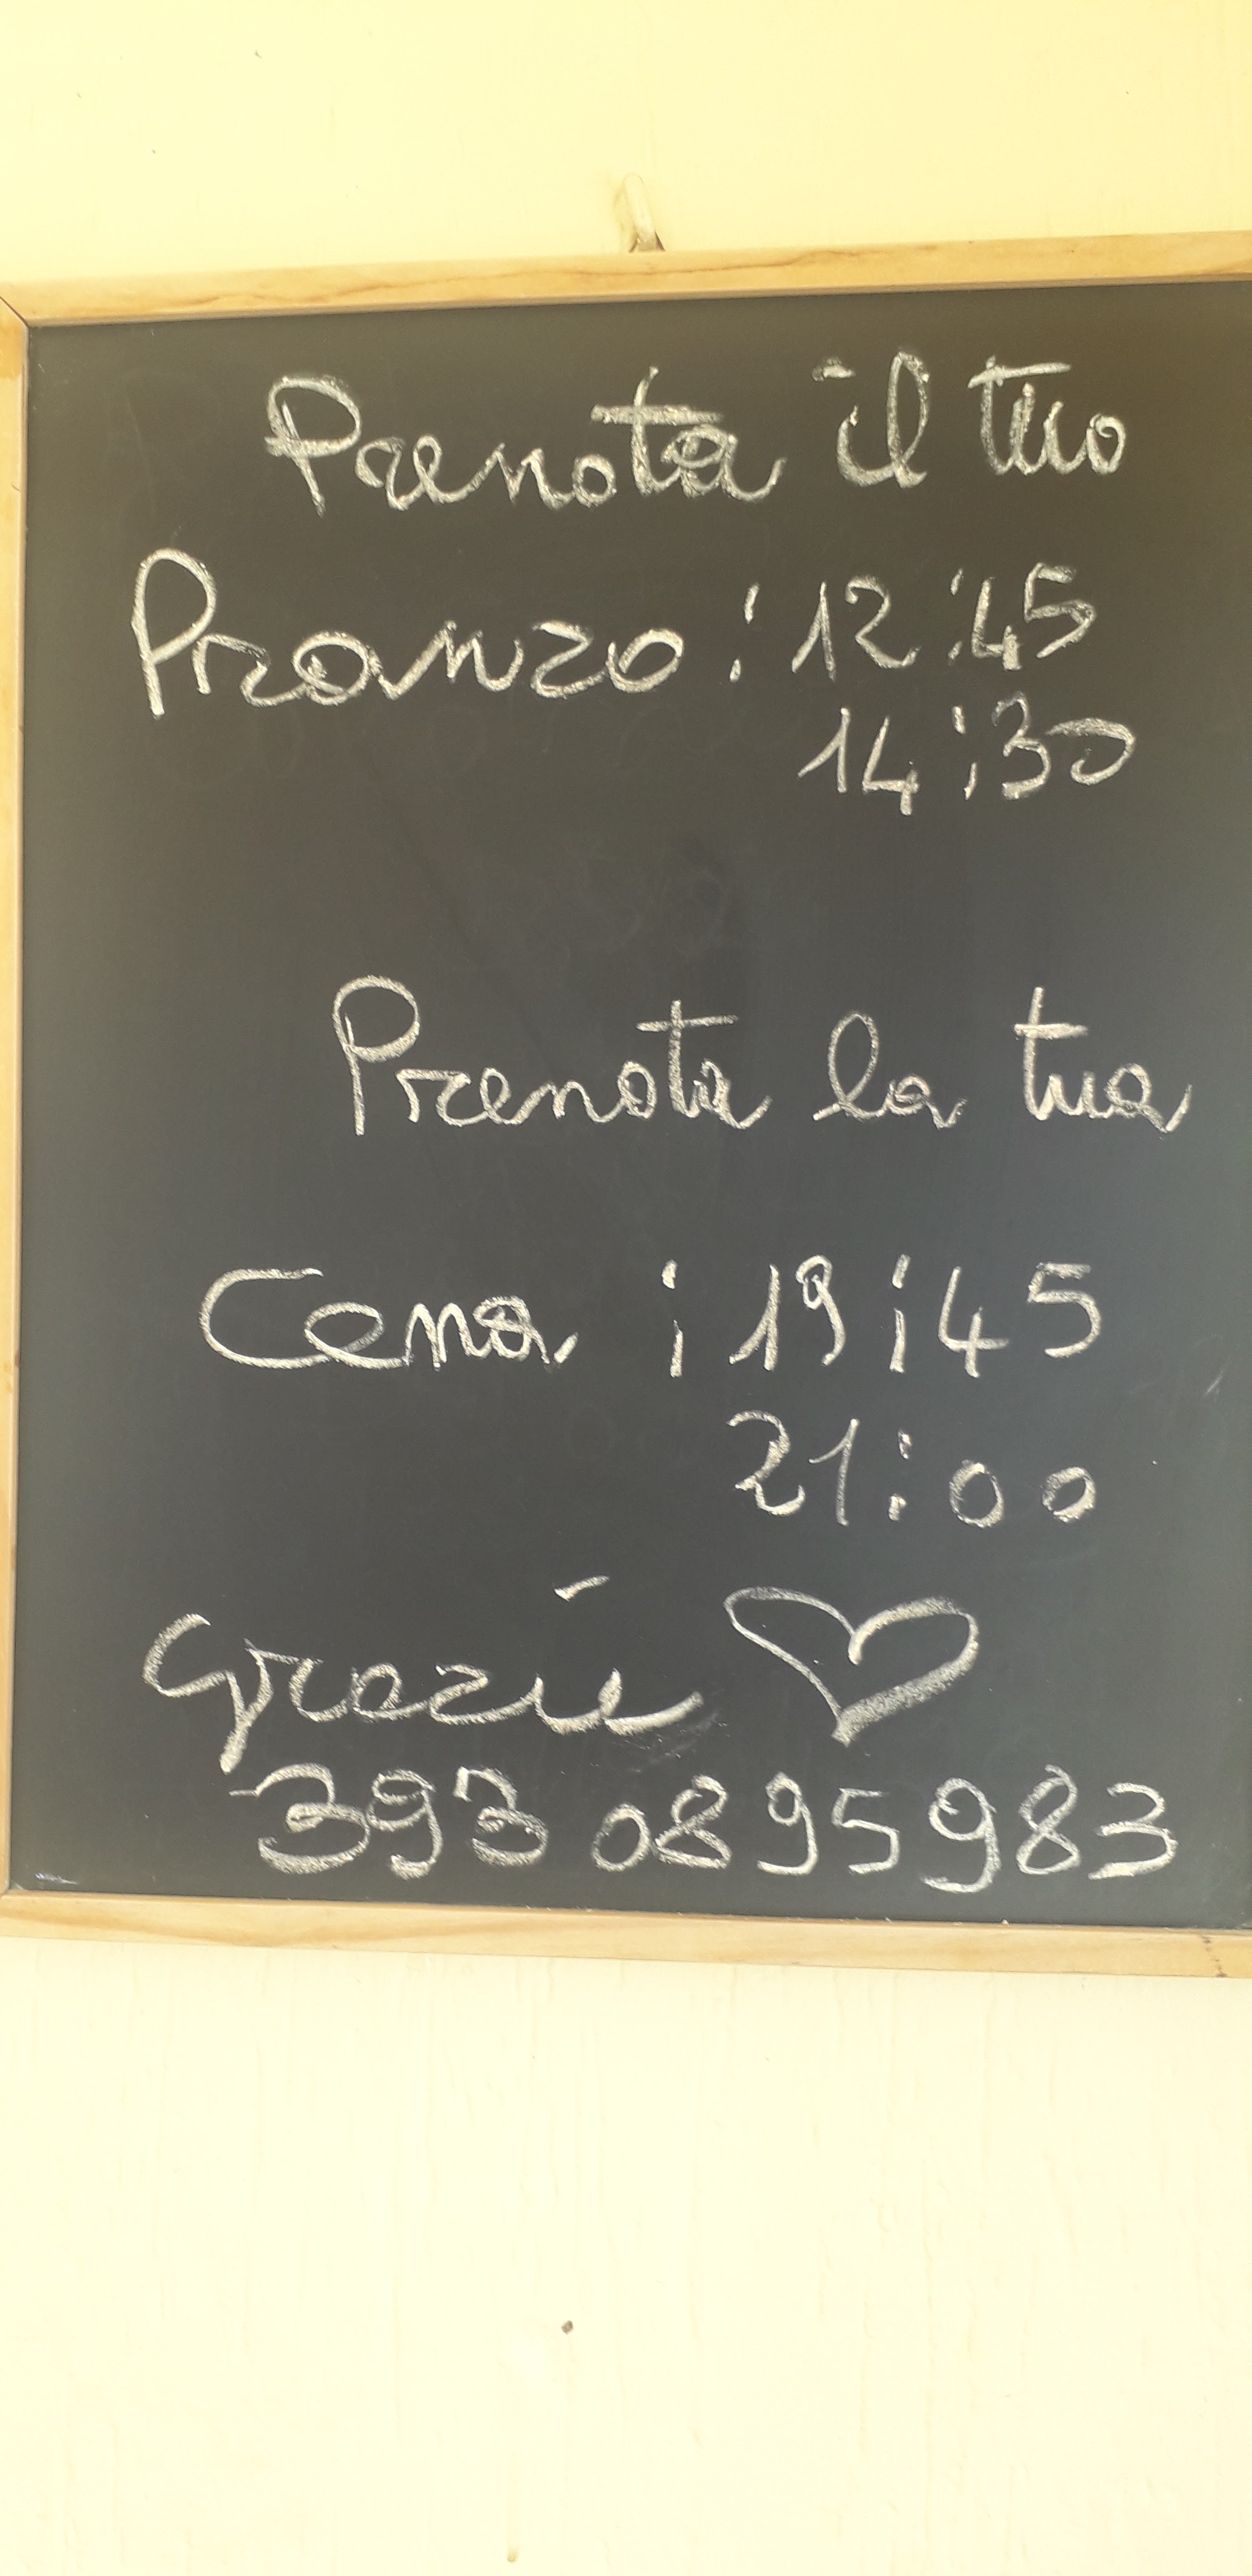 Prenota il tuo
Pranzo : 12:45
14:30
Prenota la tua
Cena : 19:45
21:00
Grazie
393 0895983